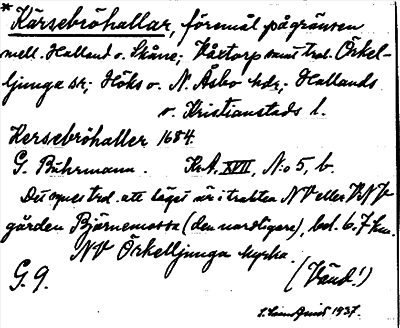 * Kärsebröhallar, föremål på gränsen
mell. Halland o. Skåne; Våxtorp samt trol. Örkel-
ljunga sn; Höks o. N. Åsbo hdr; Hallands
o. Kristianstads l.
Kersebröhaller 1684.
G. Buhrmann. Kr.A. XVII, N:o 5, b.
Det synes trol. att läget är i trakten NV eller VNV
gården Bjärnemossa (den nordligare), bel. 6,7 km.
NV Örkelljunga kyrka.
G. 9. (Vänd!)
1937.